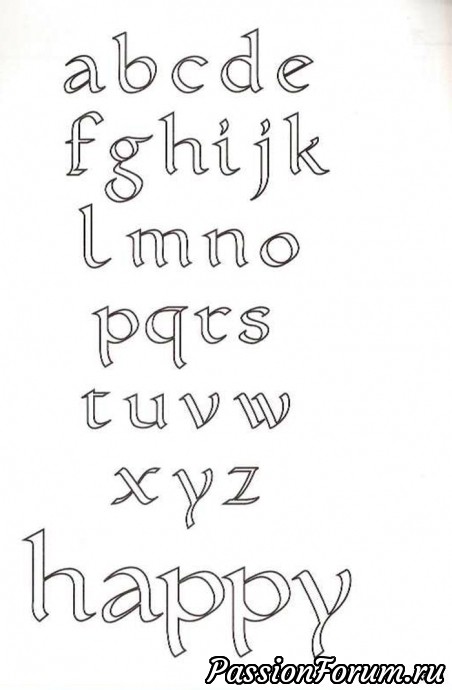 abcde
fghijk
lmno
pqrs
tuvw
xyz
happy
PassionForum.ru